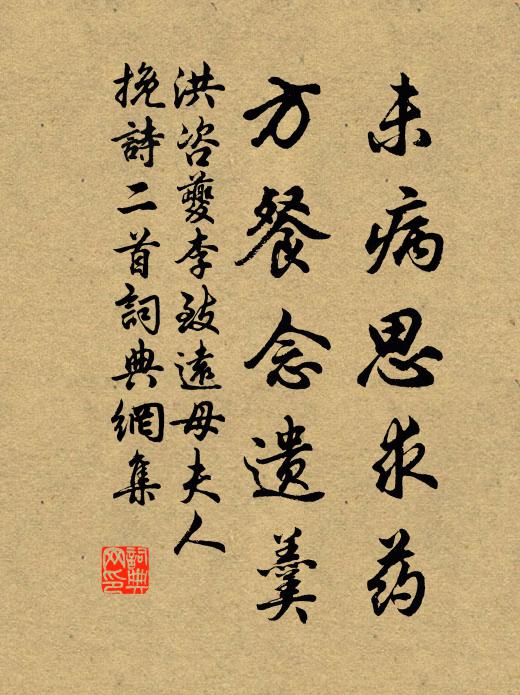 未病思求药
方餐念遗羹
洪咨夔李致遠母夫人
挽詩二首詞典網集
詞典網印